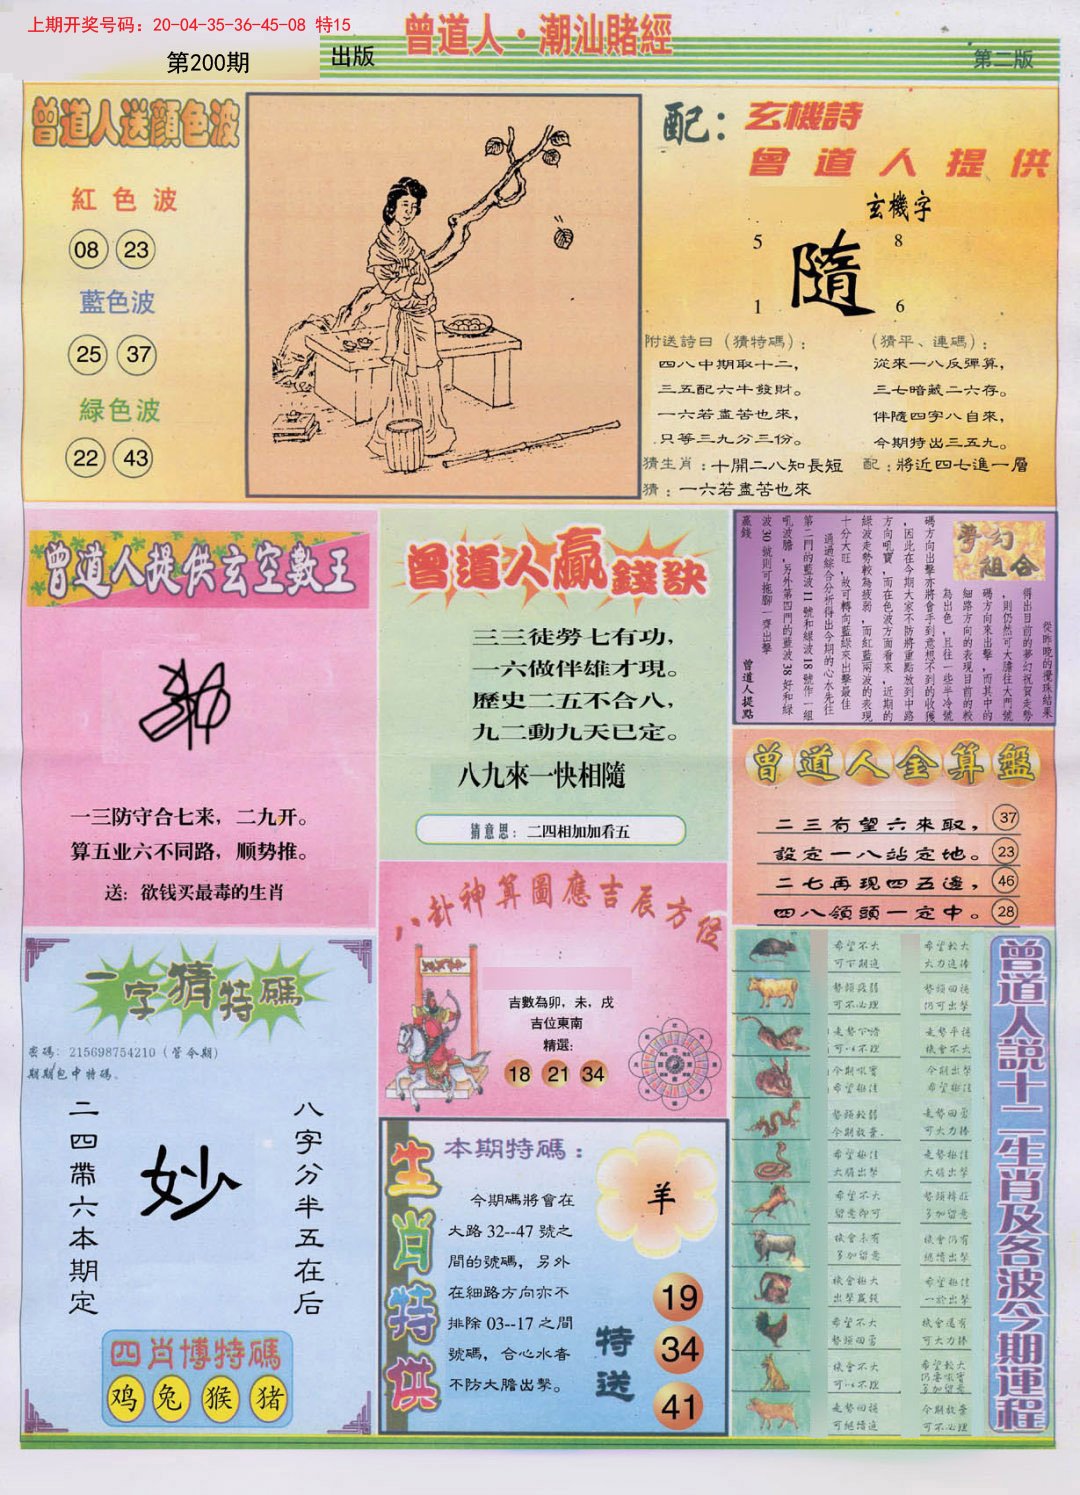 上期开奖号码：20-04-35-36-45-08 特15
第200期
出版
曾道人·潮汕賭經
第二版
曾道人送顏色波
紅色波
08 23
藍色波
25 37
緑色波
22 43
配：玄機詩
曾道人提供
玄機字
5 8
隨
1 6
附送詩曰（猜特碼）；
四八中期取十二，
三五配六牛發財。
一六若盡苦也來，
只等三九分三份。
（猜平、連碼）；
從來一八反彈算，
三七暗藏二六存。
伴隨四字八自來，
今期特出三五九。
猜生肖：十開二八知長短
配：將近四七進一層
猜：一六若盡苦也來
曾道人提供玄空數王
一三防守合七来，二九开。
算五业六不同路，顺势推。
送：欲钱买最毒的生肖
曾道人贏錢訣
三三徒勞七有功，
一六做伴雄才現。
歷史二五不合八，
九二動九天已定。
八九來一快相隨
猜意思：二四相加加看五
夢幻組合
從昨晚的攪珠結果
得出目前的夢幻祝賀走勢
，則仍然可大膽往大門號
碼方向來出擊，而其中的
細路方向的表現目前的較
為出色，且往一些半冷號
碼方向出擊亦將會手到意想不到的收獲
，因此在今期大家不防將重點放到中路
方向吼寶，而在色波方面看來，近期的
綠波走勢較為疲弱，而紅藍兩波的表現
十分大旺，故可轉向藍綠來出擊最佳
。通過綜合分析得出今期的心水先往
第二門的藍波11號和綠波18號作一組
吼波膽，另外第四門的藍波38好和綠
波30號則可拖腳一齊出擊
贏錢
曾道人提點
曾道人金算盤
二三有望六來取， 37
設定一八站定地。 23
二七再現四五邊， 46
四八領頭一定中。 28
八卦神算圖應吉辰方位
吉數為卯，未，戌
吉位東南
精選：
18 21 34
一字猜特碼
密碼：215698754210（管今期）
期期包中特碼。
二四帶六本期定
妙
八字分半五在后
四肖博特碼
鸡 兔 猴 猪
生肖特供
本期特碼：
今期碼將會在
大路32--47號之
間的號碼，另外
在細路方向亦不
排除03--17之間
號碼，合心水者
不防大膽出擊。
羊
特送
19
34
41
曾道人說十二生肖及各波今期運程
希望不大
可下期追
希望較大
大力追捧
勢頭疲弱
可不必理
勢頭回穩
仍可出擊
走勢平穩
機會不大
今期吼寶
希望極佳
今期出擊
希望極佳
勢頭較弱
今期放棄
走勢回勇
可大力捧
走勢極佳
大膽出擊
走勢極佳
大膽出擊
希望不大
留意即可
勢頭轉旺
多加留意
機會未有
多加留意
機會仍有
繼續出擊
機會極大
出擊贏錢
希望極佳
一於出擊
希望不大
勢頭回勇
機會還有
可大力捧
機會不大
可一不理
希望較大
仍要吼實
多加留意
走勢回穩
可繼續追
今期放棄
可不必理